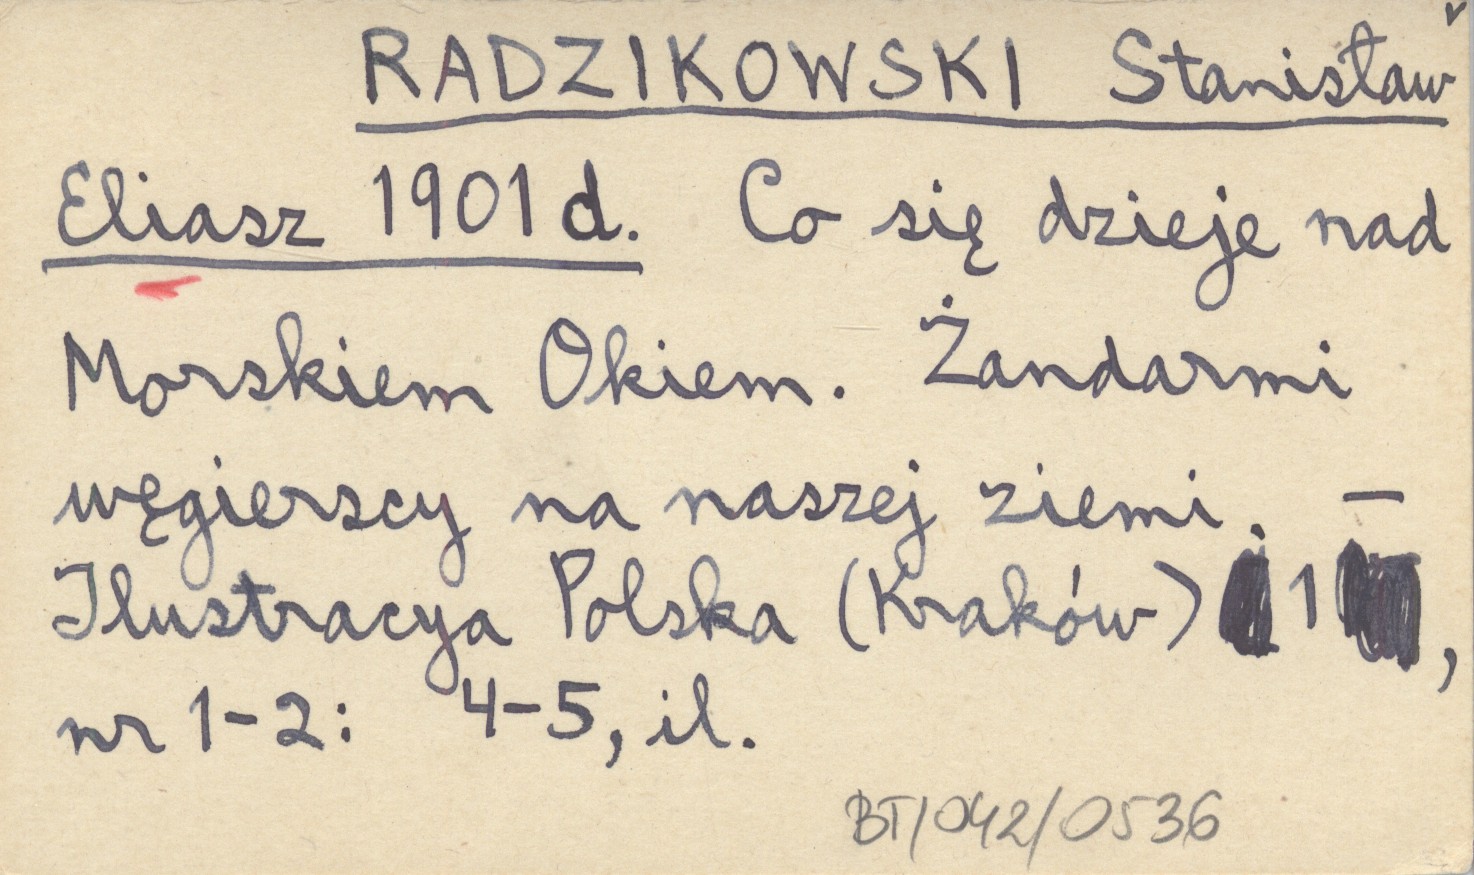 RADZIKOWSKI Stanisław
Eliasz 1901 d. Co się dzieje nad
Morskiem Okiem. Żandarmi
węgierscy na naszej ziemi. —
Ilustracya Polska (Kraków) 1 ,
nr 1-2: 4-5, il.
BT/042/0536